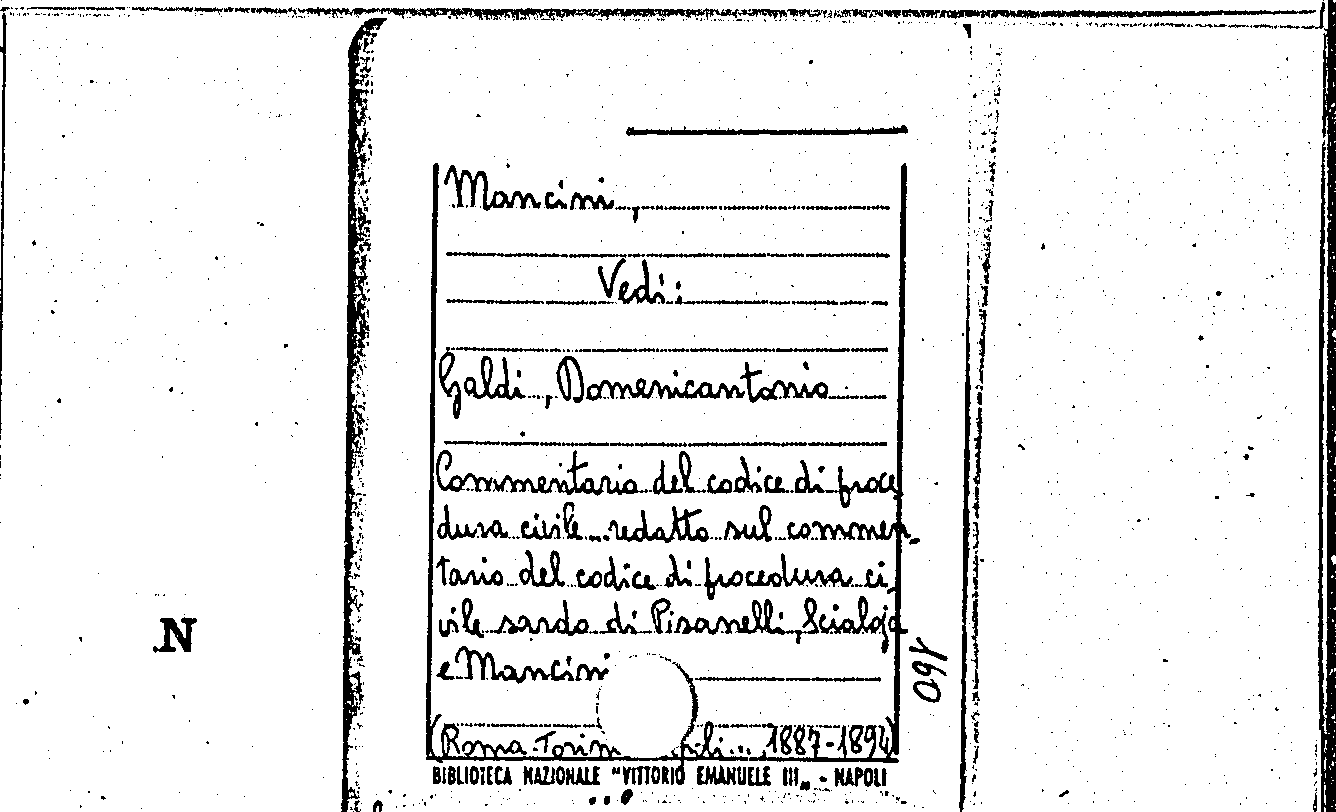 Mancini,
Vedi:
Galdi, Domenicantonio
Commentario del codice di proce
dura civile... redatto sul commen-
tario del codice di procedura ci
vile sardo di Pisanelli, Scialoja
e Mancini
(Roma-Torin poli... 1887-1894)
BIBLIOTECA NAZIONALE "VITTORIO EMANUELE III„ - NAPOLI
N
160